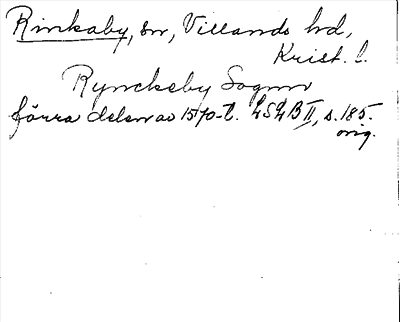 Rinkaby, sn, Villands hd,
Krist. l.
Rynckeby Sognn
förra delen av 1570-t. LSLB II, s. 185.
orig.